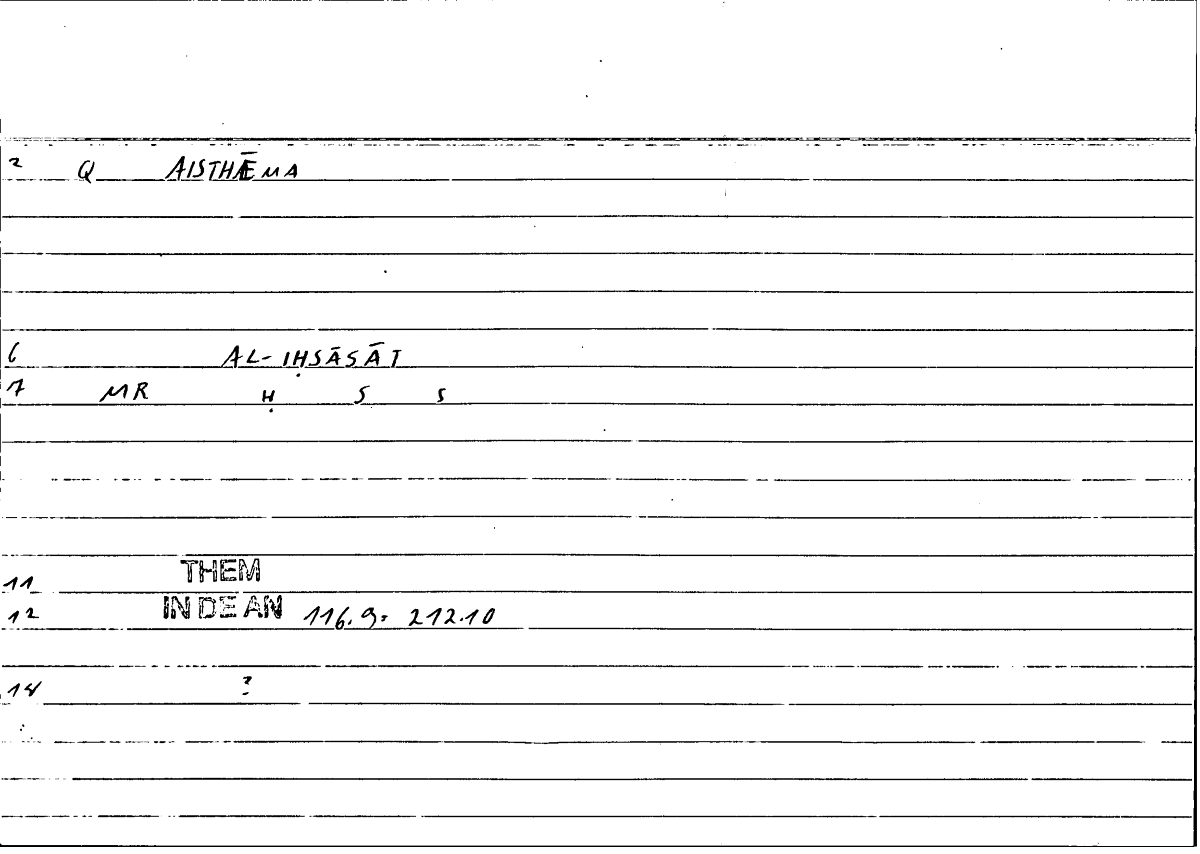 2 Q AISTHĒMA
6 AL-IḤSĀSĀT
7 MR Ḥ S S
11 THEM
12 IN DE AN 116.9= 212.10
14 ?